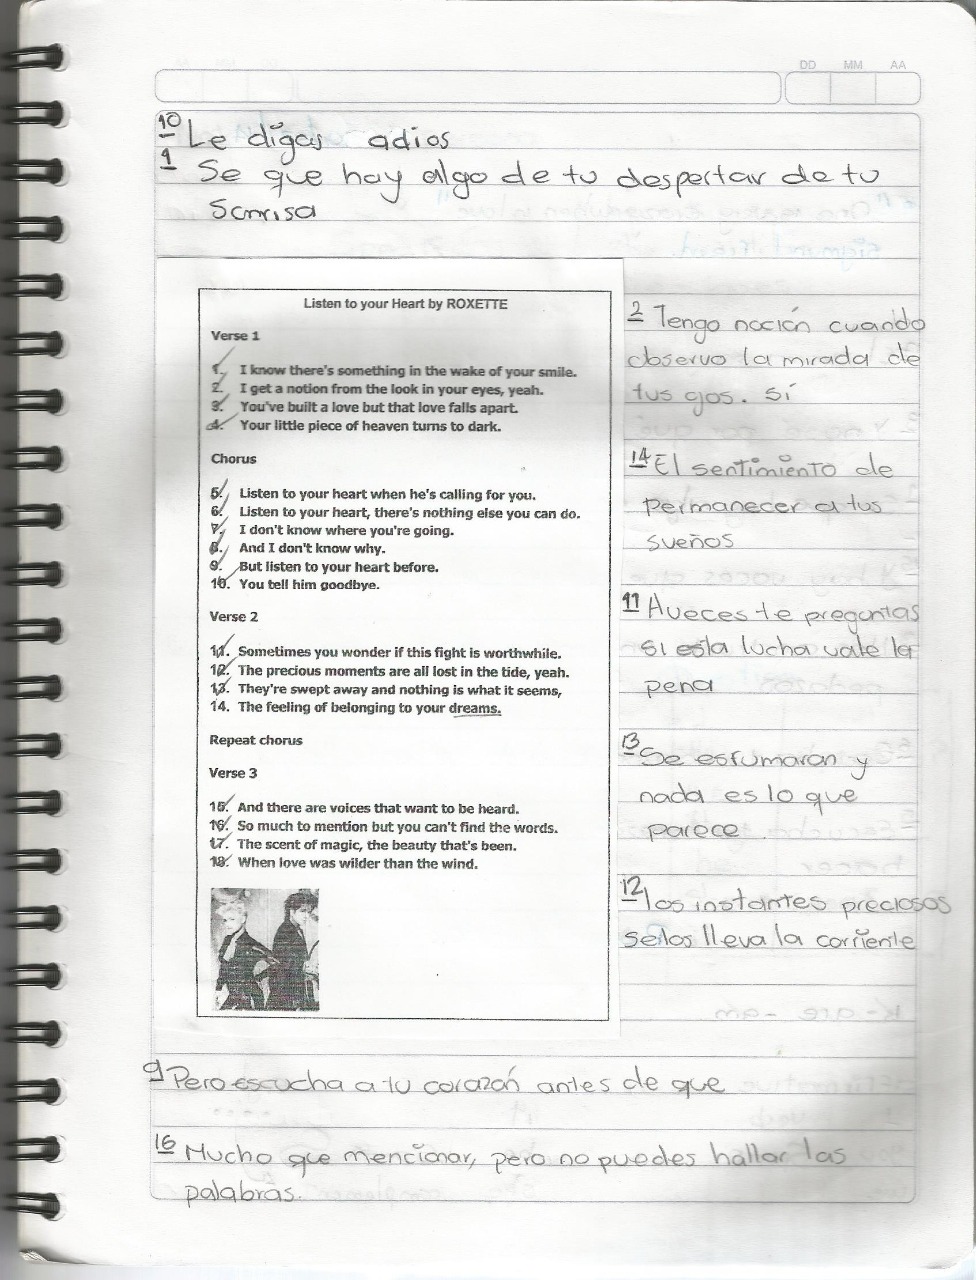 DD MM AA
10 Le digas adios
1 Se que hay algo de tu despertar de tu
Sonrisa
Listen to your Heart by ROXETTE
Verse 1
1. I know there's something in the wake of your smile.
2. I get a notion from the look in your eyes, yeah.
3. You've built a love but that love falls apart.
4. Your little piece of heaven turns to dark.
Chorus
5. Listen to your heart when he's calling for you.
6. Listen to your heart, there's nothing else you can do.
7. I don't know where you're going.
8. And I don't know why.
9. But listen to your heart before.
10. You tell him goodbye.
Verse 2
11. Sometimes you wonder if this fight is worthwhile.
12. The precious moments are all lost in the tide, yeah.
13. They're swept away and nothing is what it seems,
14. The feeling of belonging to your dreams.
Repeat chorus
Verse 3
15. And there are voices that want to be heard.
16. So much to mention but you can't find the words.
17. The scent of magic, the beauty that's been.
18. When love was wilder than the wind.
2 Tengo noción cuando
observo la mirada de
tus ojos. sí
14 El sentimiento de
permanecer a tus
sueños
11 Aveces te preguntas
si esta lucha vale la
pena
13 Se esfumaran y
nada es lo que
parece.
12 los instantes preciosos
selos lleva la corriente
9 Pero escucha a tu corazón antes de que
16 Mucho que mencionar, pero no puedes hallar las
palabras.